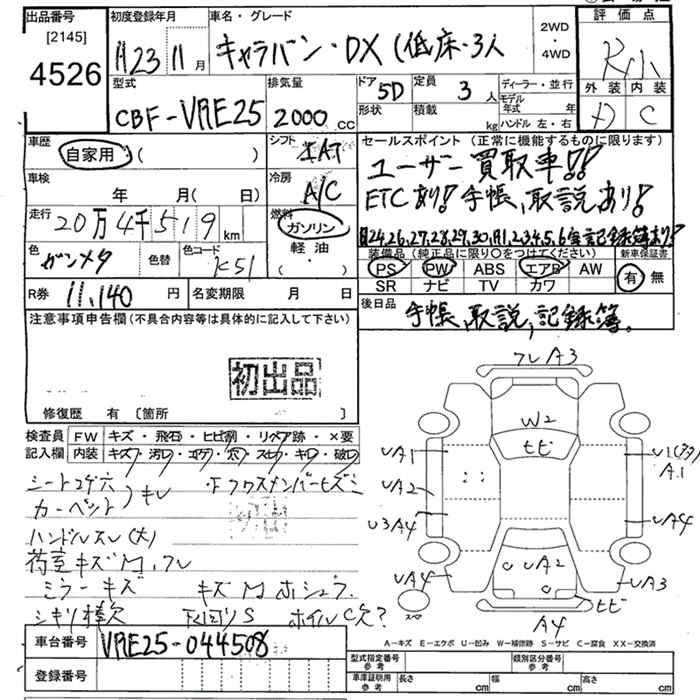 出品番号
[2145]
4526
初度登録年月
H23 11月
車名・グレード
キャラバン・DX (低床・3人
2WD・4WD
評価点
外装 内装
C
型式
CBF-VRE25
排気量
2000 CC
ドア 5D
形状
定員 3人
積載 kg
ディーラー・並行
モデル年式 年
ハンドル 左・右
車歴
自家用 ( )
シフト
セールスポイント (正常に機能するものに限ります)
ユーザー買取車!!
ETCあり! 手帳、取説あり!
H24,26,27,28,29,30,R1,2,3,4,5,6 記録簿あり!
車検
年 月( 日)
冷房 A/C
走行
20万4千519 km
燃料
ガソリン
軽油
( ・ )
色
ガンメタ
色替
色コード K51
装備品 (純正品に限り○をつけてください)
新車保証書
PS PW ABS エアB AW
SR ナビ TV カワ
有 無
R券 11,140 円
名変期限 月 日
後日品
手帳、取説、記録簿。
注意事項申告欄 (不具合内容等は具体的に記入して下さい)
初出品
修復歴 有 [箇所 ]
検査員記入欄
FW キズ・飛石・ヒビ割・リペア跡・×要
内装 キズ・汚レ・コゲ・穴・スレ・キレ・破レ
シートコゲ穴
カーペット キレ
ハンドルスレ(大)
荷室キズM,フレ
ミラーキズ
シキリ棒欠
フレA3
W2
ヒビ
UA1
UA2
U3A4
UA4
A1
UA4
UA3
UA2
ヒビ
スペ
A4
A-キズ E-エクボ U-凹み W-補修跡 S-サビ C-腐食 XX-交換済
車台番号 VRE25-044508
登録番号
型式指定番号参考
類別区分番号参考
車庫証明用参考
長さ cm 幅 cm 高さ cm